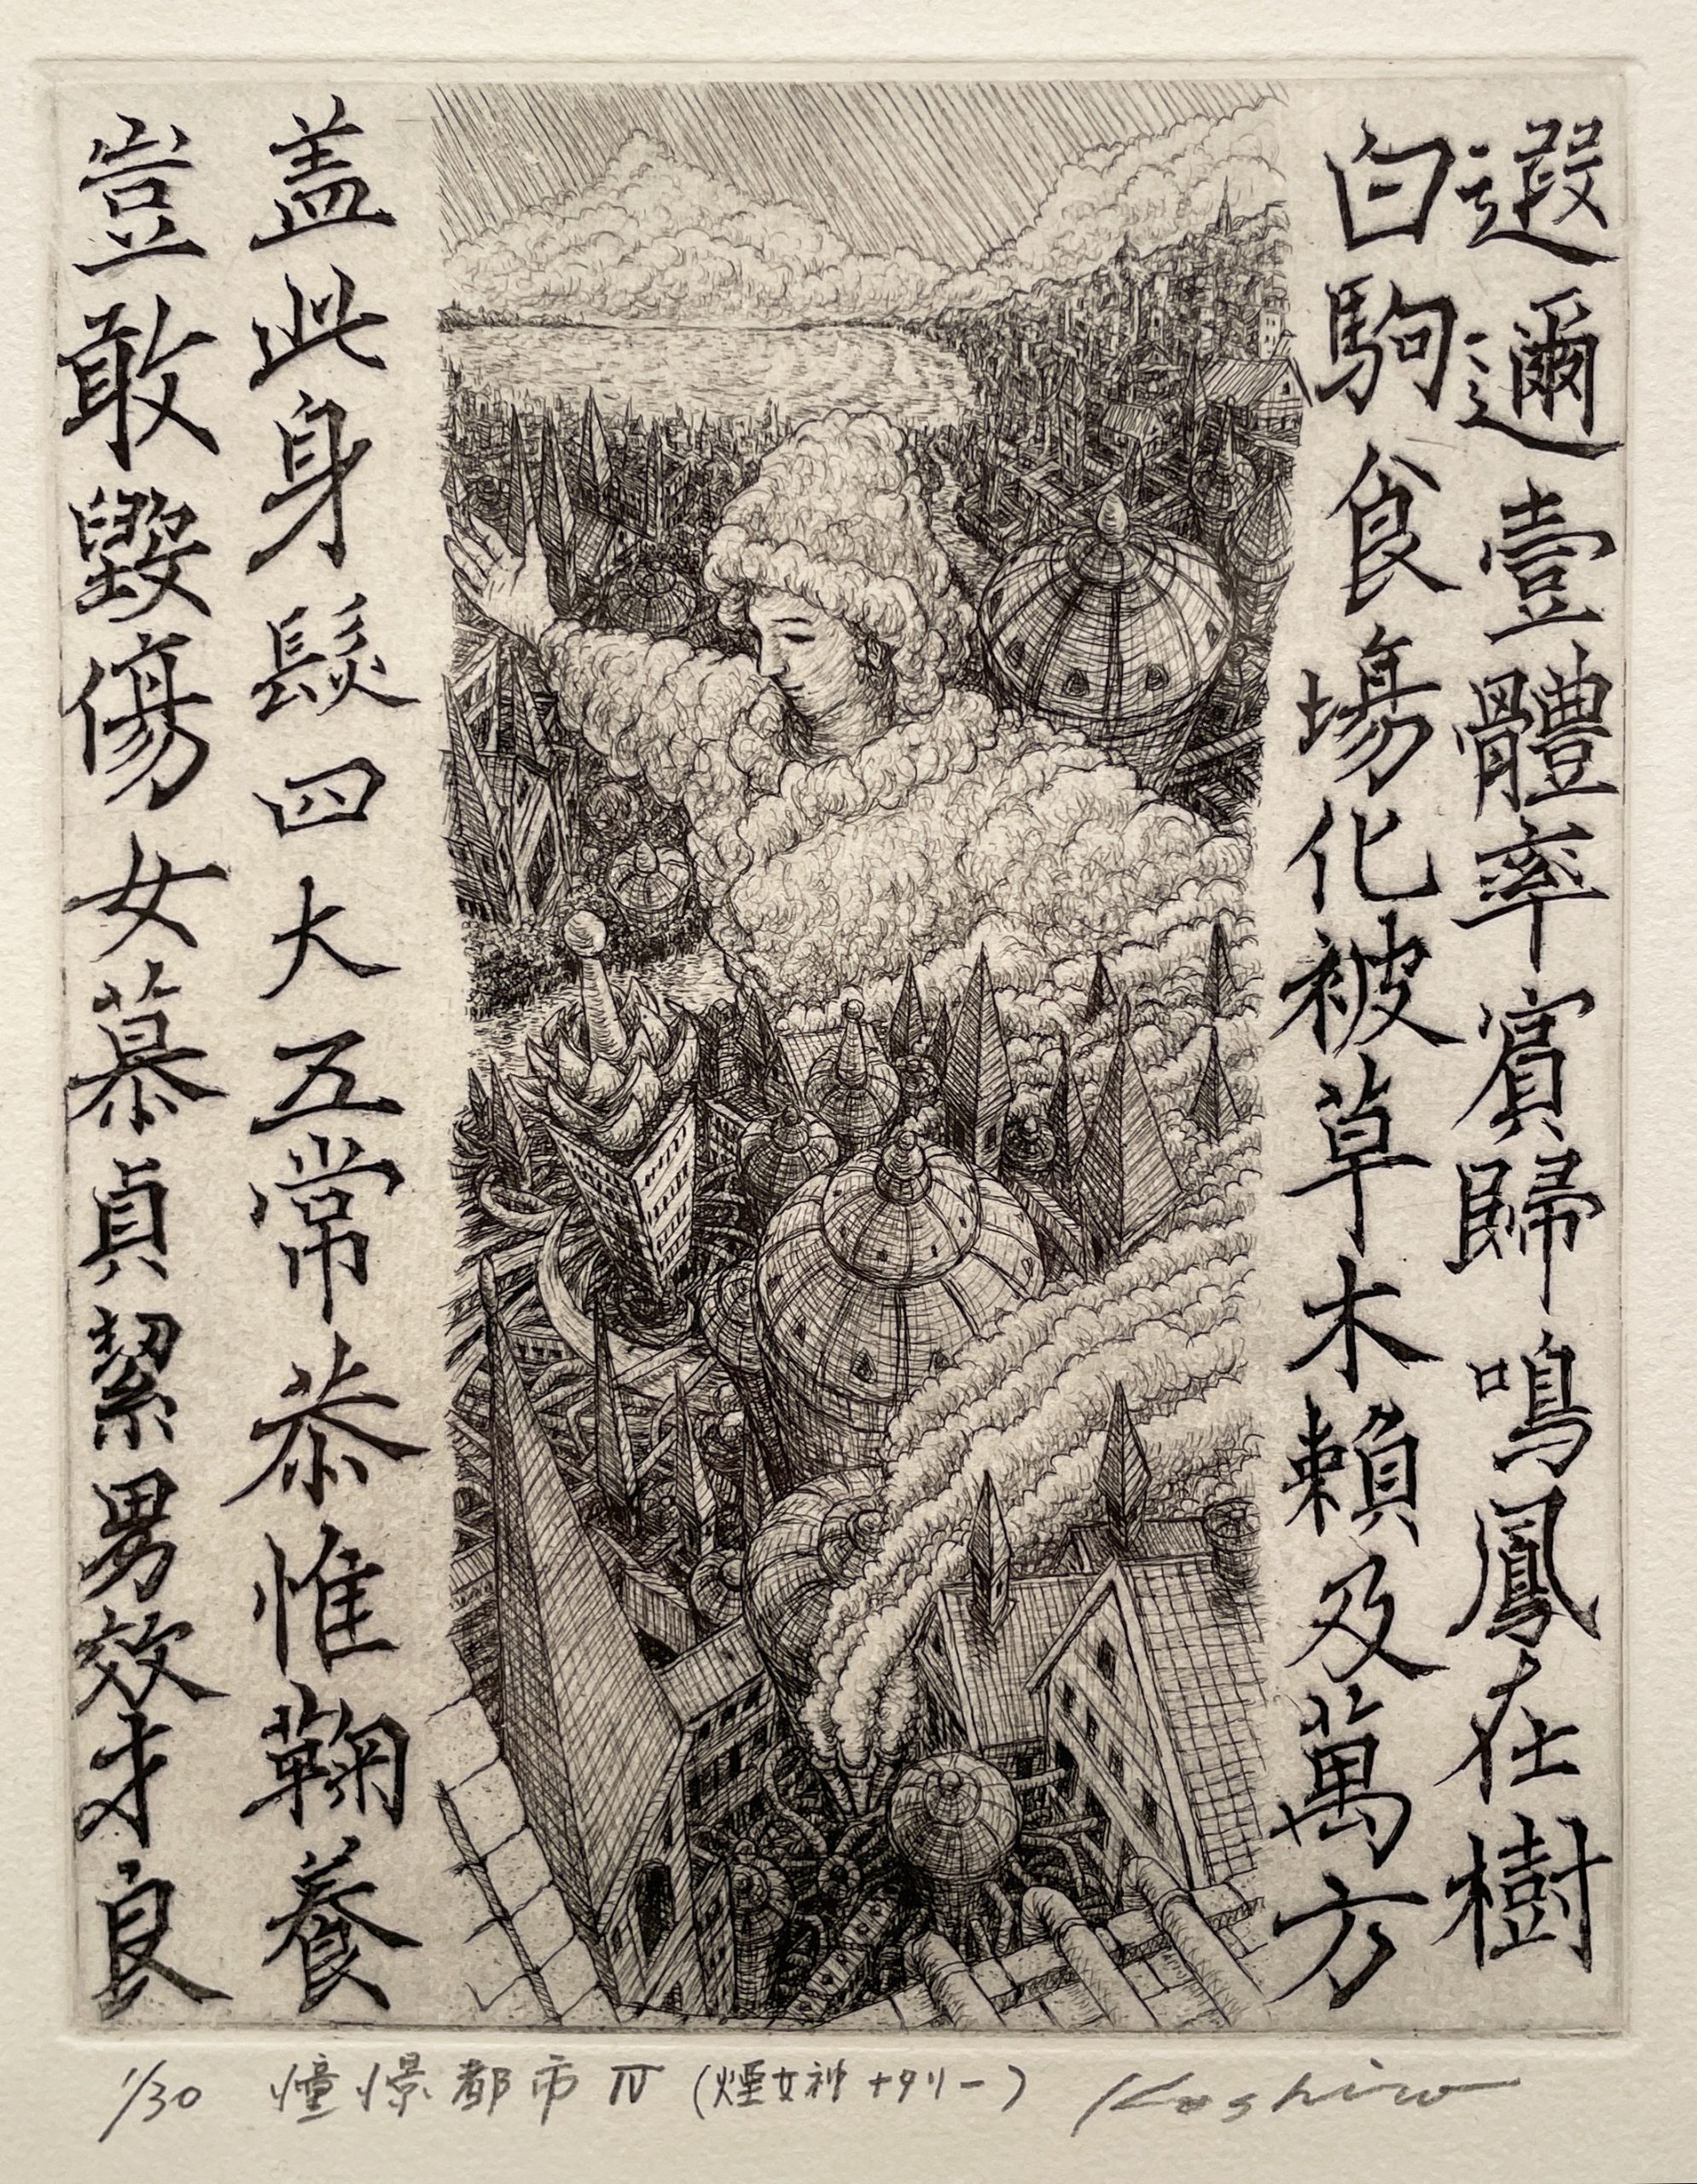 遐邇壹體率賓歸鳴鳳在樹
白駒食場化被草木賴及萬方
盖此身髮四大五常恭惟鞠養
豈敢毀傷女慕貞絜男效才良
1/30 憧憬都市 IV (煙女神ナタリー) Koshiro